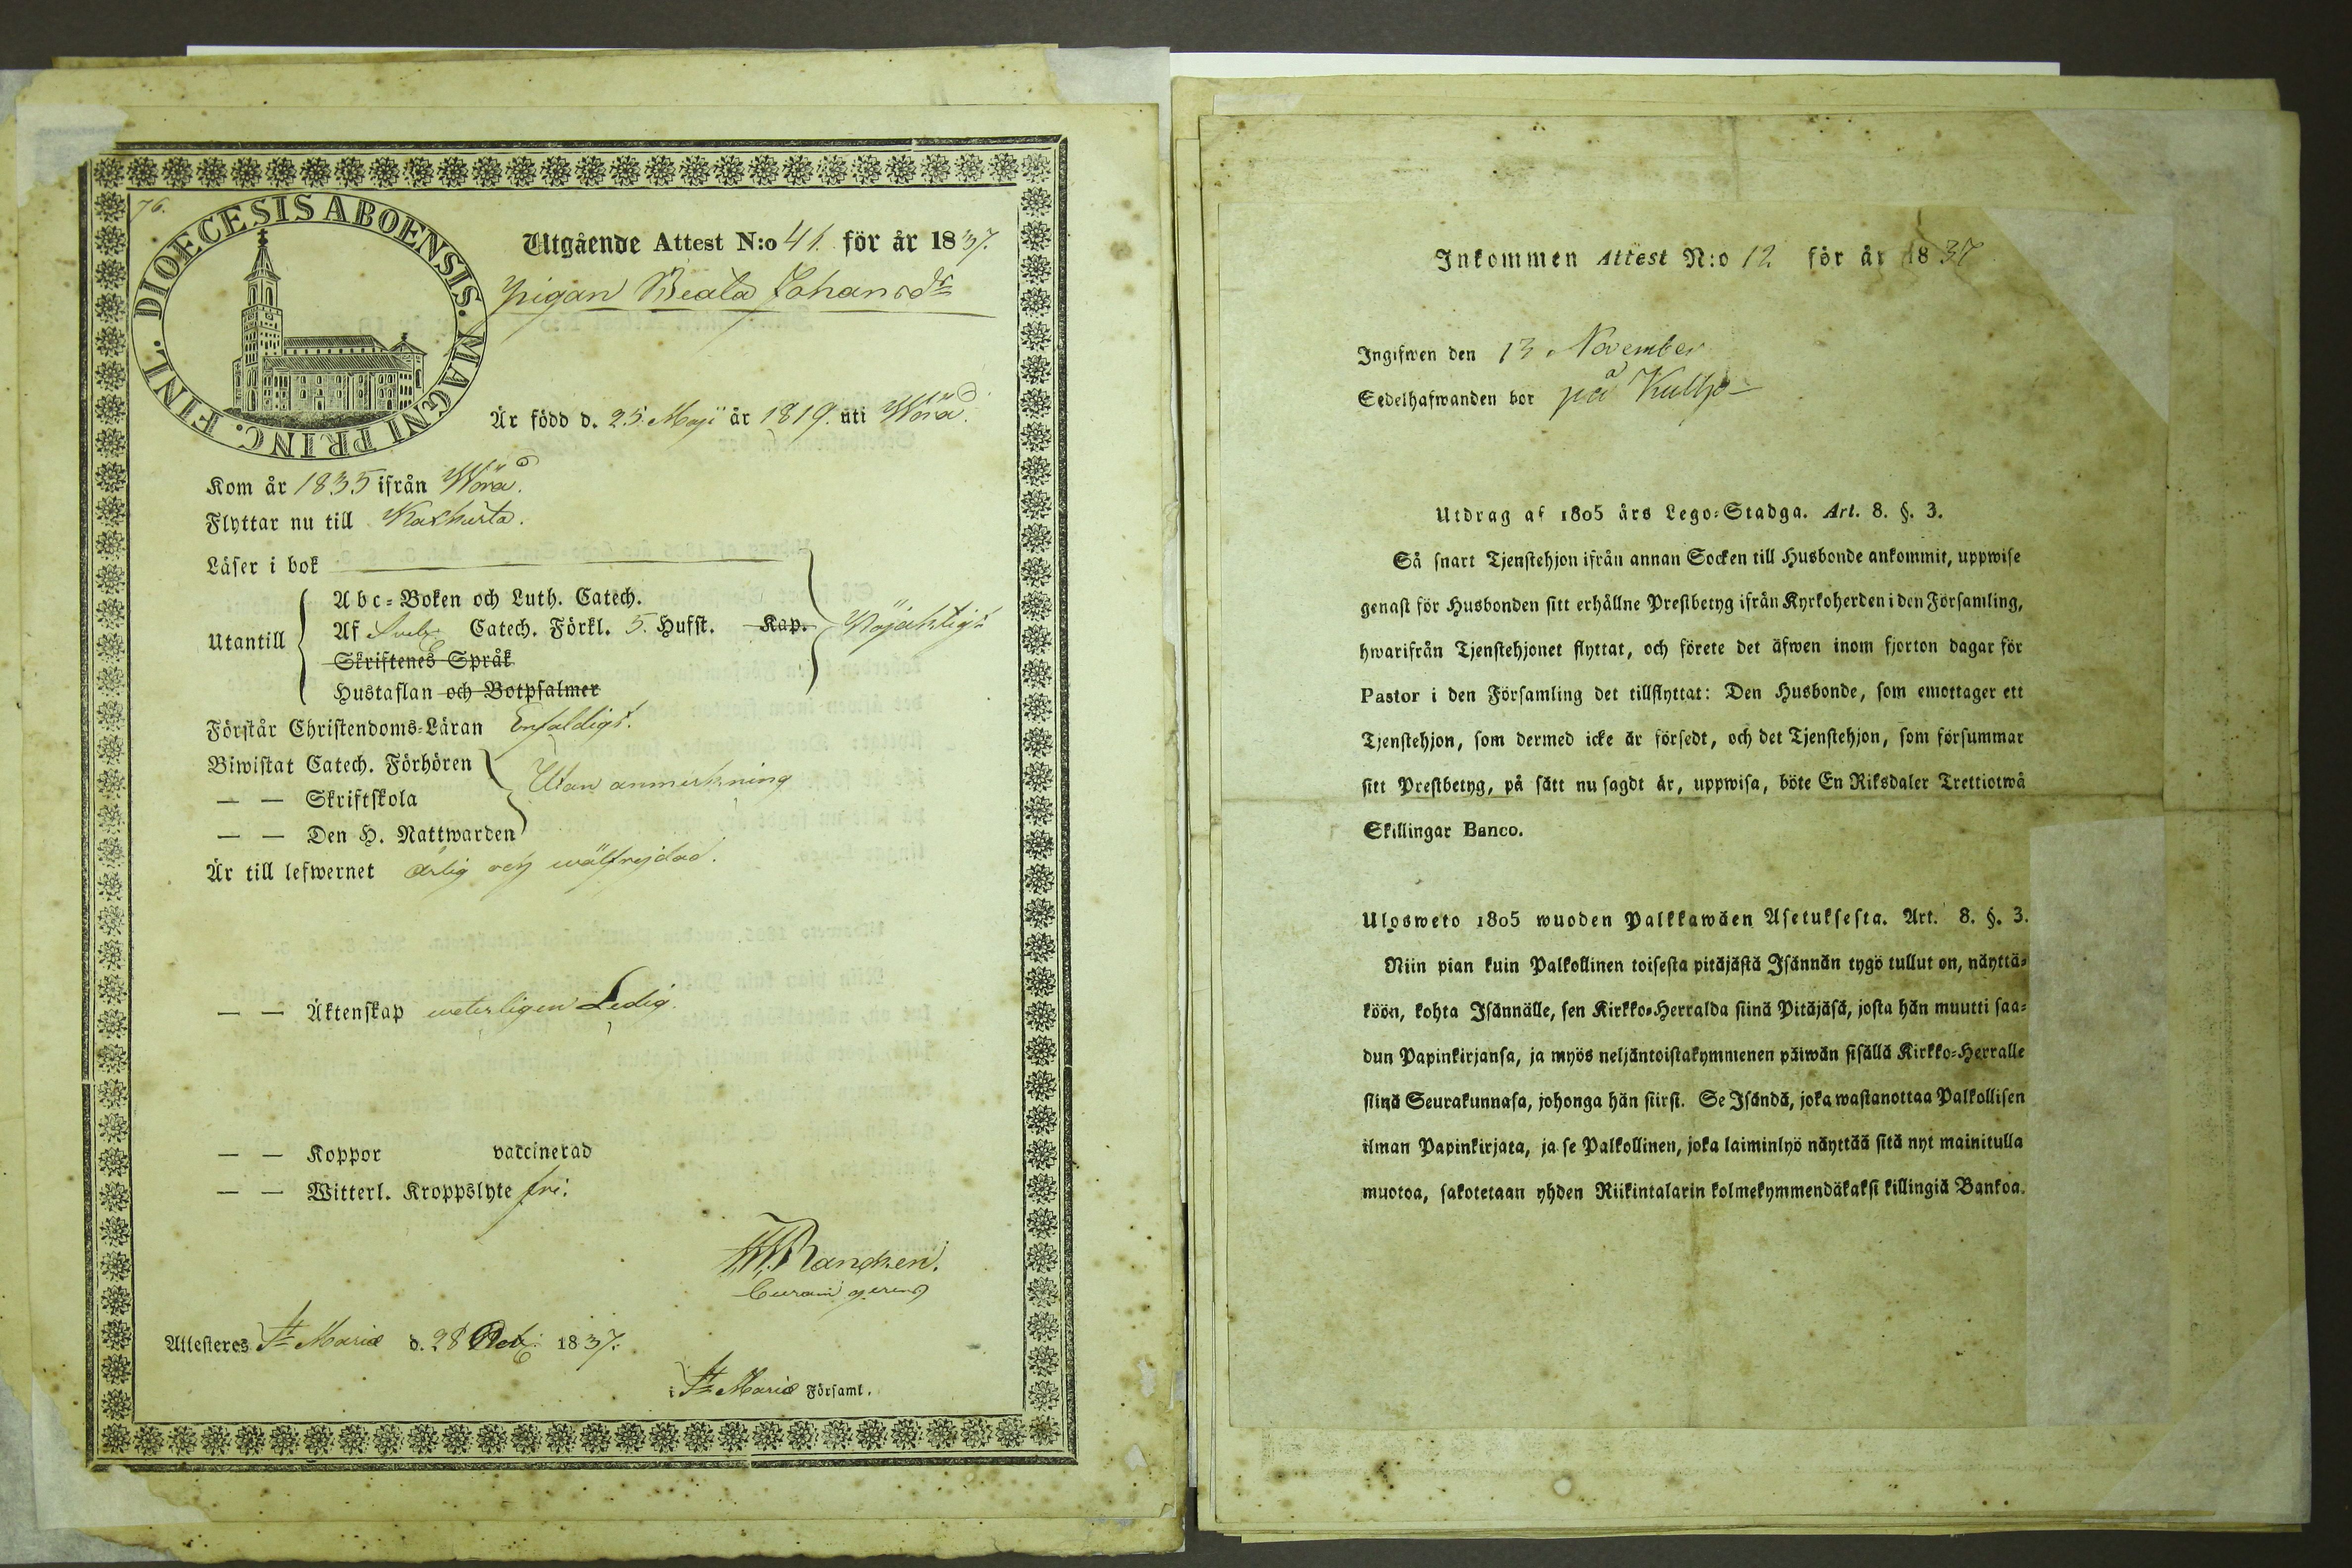 76.
DIOECESIS ABOENSIS. MAGNI PRINC. FINL.
Utgående Attest N:o 41. för år 1837.
Pigan Beata Johansdr
Är född d. 25. Maji år 1819. uti Wörå.
Kom år 1835 ifrån Wörå.
Flyttar nu till Karkurla.
Läser i bok
Utantill
Abc-Boken och Luth. Catech.
Af Sveb. Catech. Förkl. 5. Hufst. Kap.
Skriftenes Språk
Hustaflan och Botpsalmer
Nöjaktigt
Förstår Christendoms-Läran Enfaldigt.
Biwistat Catech. Förhören
— — Skriftskola
— — Den H. Nattwarden
Utan anmerkning
Är till lefwernet ärlig och wälfrejdad.
— — Äktenskap weterligen Ledig.
— — Koppor vaccinerad
— — Witterl. Kroppslyte fri.
Rancken.
Curam gerens
Attesteres St Mariæ d. 28 Octb. 1837.
i St Mariæ Församl.
Inkommen Attest N:o 12 för år 1837
Ingifwen den 13 November
Sedelhafwanden bor på
Utdrag af 1805 års Lego-Stadga. Art. 8. §. 3.
Så snart Tjenstehjon ifrån annan Socken till Husbonde ankommit, uppwise
genast för Husbonden sitt erhållne Prestbetyg ifrån Kyrkoherden i den Församling,
hwarifrån Tjenstehjonet flyttat, och förete det äfwen inom fjorton dagar för
Pastor i den Församling det tillflyttat: Den Husbonde, som emottager ett
Tjenstehjon, som dermed icke är försedt, och det Tjenstehjon, som försummar
sitt Prestbetyg, på sätt nu sagdt är, uppwisa, böte En Riksdaler Trettiotwå
Skillingar Banco.
Ulosweto 1805 wuoden Palkkawäen Asetuksesta. Art. 8. §. 3.
Niin pian kuin Palkollinen toisesta pitäjästä Isännän tygö tullut on, näyttä-
köön, kohta Isännälle, sen Kirkko-Herralda siinä Pitäjäsä, josta hän muutti saa-
dun Papinkirjansa, ja myös neljäntoistakymmenen päiwän sisällä Kirkko-Herralle
siinä Seurakunnasa, johonga hän siirsi. Se Isändä, joka wastanottaa Palkollisen
ilman Papinkirjata, ja se Palkollinen, joka laiminlyö näyttää sitä nyt mainitulla
muotoa, sakotetaan yhden Riikintalarin kolmekymmendäkaksi killingiä Bankoa.